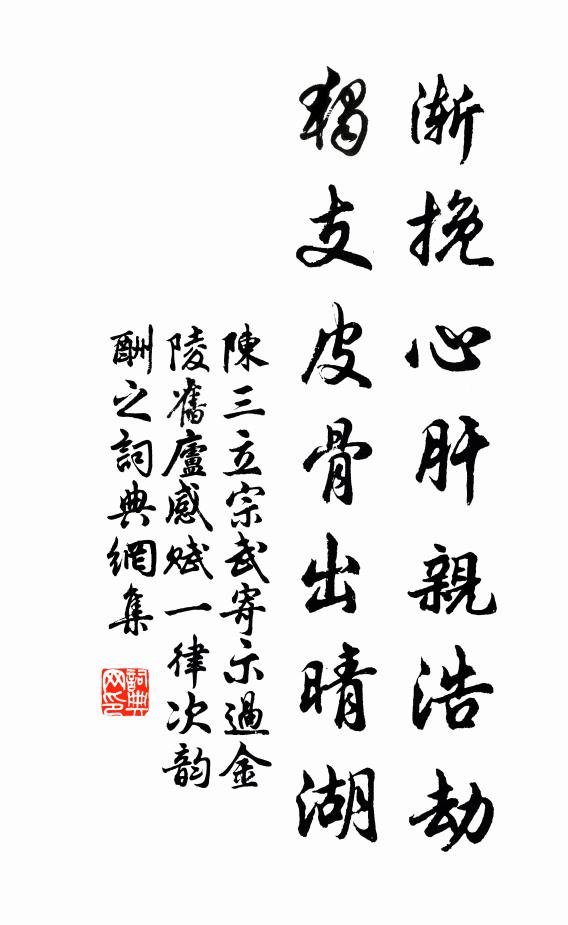 漸挽心肝親浩劫
獨支皮骨出晴湖
陳三立宗武寄示過金
陵舊廬感賦一律次韵
酬之詞典網集
詞典
网印